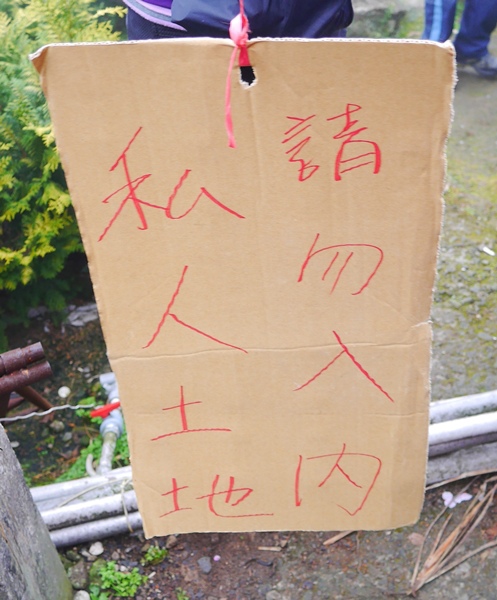 請勿入內
私人土地